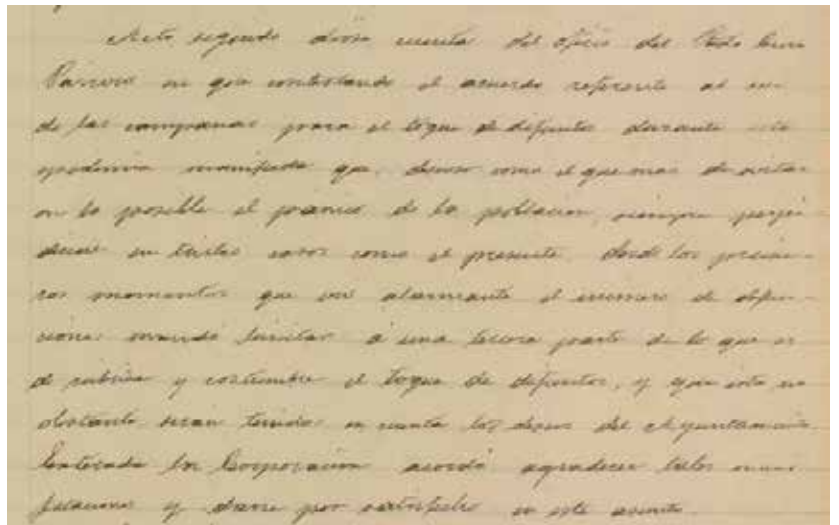 Acto seguido dióse cuenta del oficio del Sr. Cura
Párroco en que contestando el acuerdo referente al uso
de las campanas para el toque de difuntos durante esta
epidemia manifiesta que, deseoso como el que más de evitar
en lo posible el pánico de la población, siempre perju
dicial en tristes casos como el presente, desde los prime-
ros momentos que vió alarmante el número de defun-
ciones mandó limitar á una tercera parte de lo que es
de rúbrica y costumbre el toque de difuntos, y que esto no
obstante serán tenidos en cuenta los deseos del Ayuntamiento.
Enterada la Corporación acordó agradecer tales mani
festaciones y darse por satisfecho en este asunto.